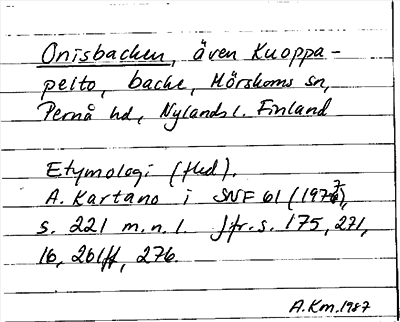 Onisbacken, även Kuoppa-
pelto, backe, Mörskoms sn,
Pernå hd, Nylands l. Finland
Etymologi (fled).
A. Kartano i SNF 61 (1977),
s. 221 m.n.l. Jfr. s. 175, 271,
16, 261ff, 276.
A.Km.1987